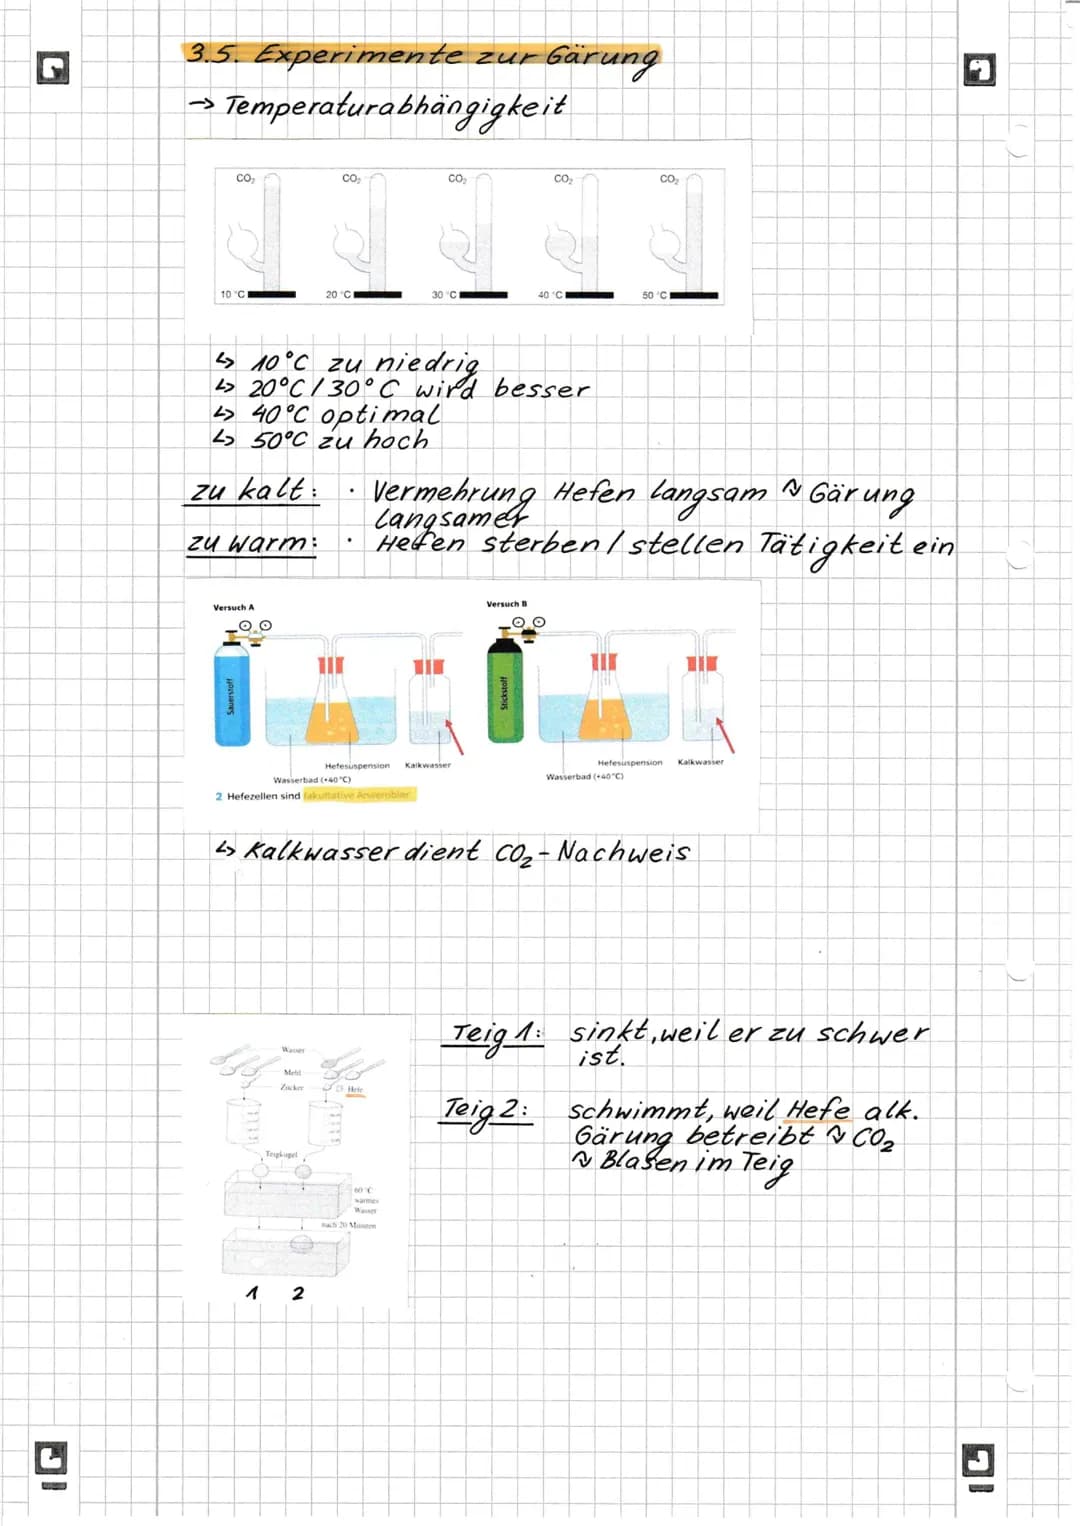 3.5. Experimente zur Gärung
→ Temperaturabhängigkeit
CO₂ CO₂ CO₂ CO₂ CO₂
10 °C 20 °C 30 °C 40 °C 50 °C
↳ 10°C zu niedrig
↳ 20°C/30°C wird besser
↳ 40°C optimal
↳ 50°C zu hoch
zu kalt: · Vermehrung Hefen langsam ↷ Gärung
langsamer
zu warm: · Hefen sterben/stellen Tätigkeit ein
Versuch A Versuch B
Sauerstoff Stickstoff
Hefesuspension Kalkwasser Hefesuspension Kalkwasser
Wasserbad (+40 °C) Wasserbad (+40 °C)
2 Hefezellen sind fakultative Anaerobier
↳ Kalkwasser dient CO₂-Nachweis
Teig 1: sinkt, weil er zu schwer
ist.
Wasser
Mehl
Zucker Hefe
Teig 2: schwimmt, weil Hefe alk.
Gärung betreibt ↷ CO₂
↷ Blasen im Teig
Teigkugel
60 °C
warmes
Wasser
nach 20 Minuten
1 2